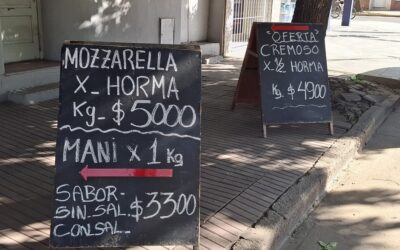 MOZZARELLA
X_ HORMA
Kg_ $5000
MANÍ X 1 Kg
SABOR-
SIN.SAL. $3300
CONSAL_
"OFERTA"
CREMOSO
X ½ HORMA
Kg. $4900